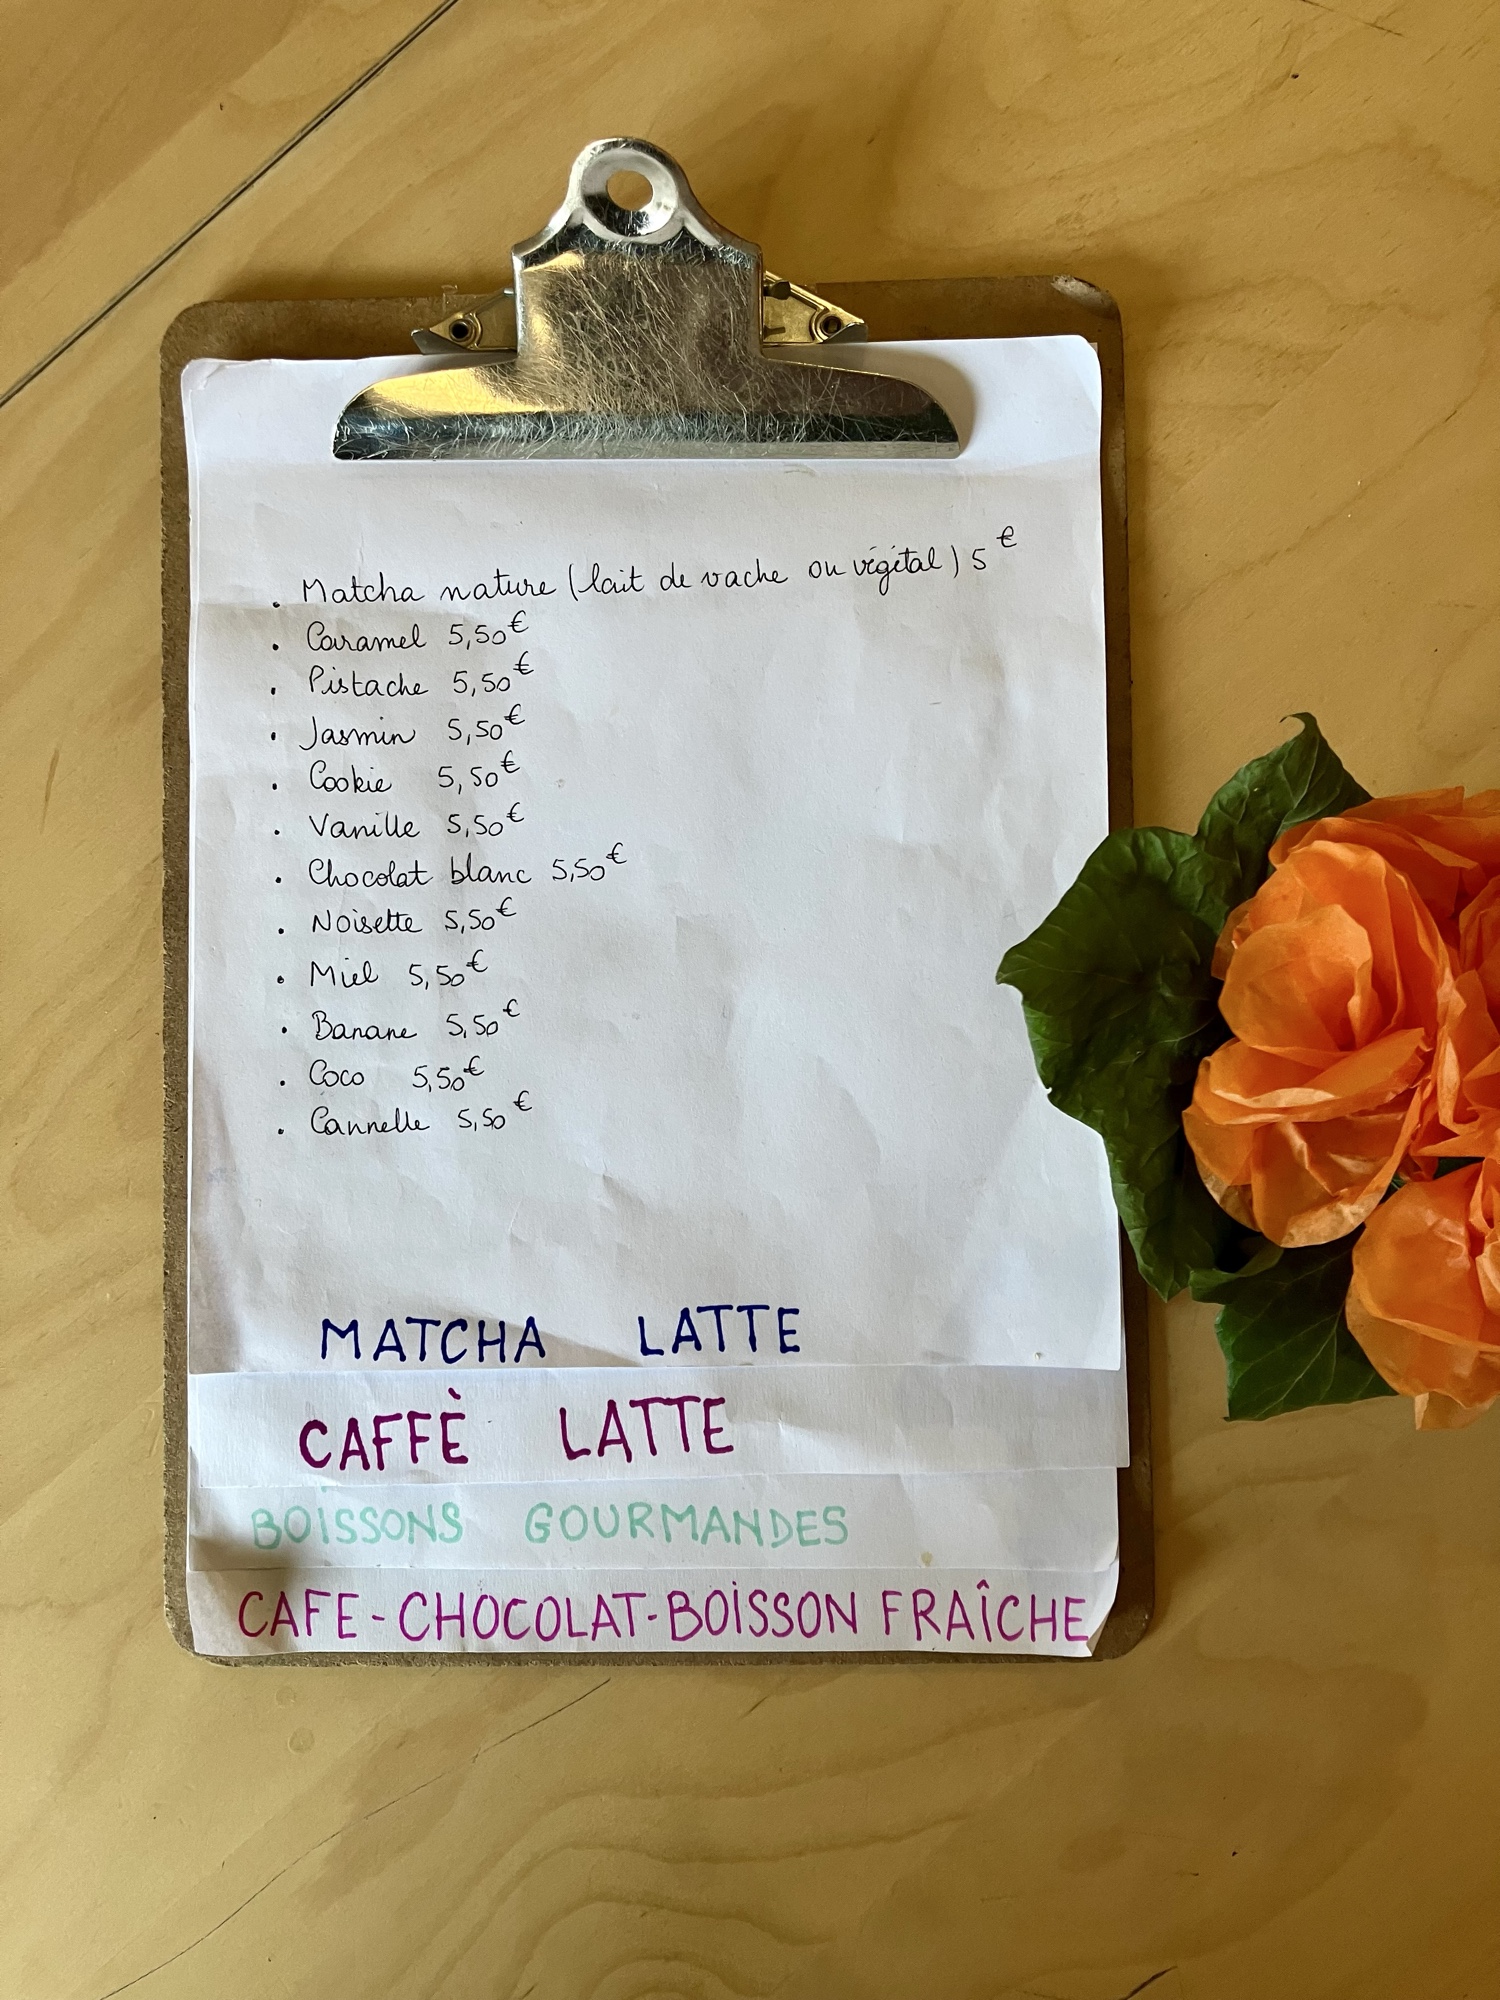 . Matcha nature (lait de vache ou végétal) 5€
. Caramel 5,50€
. Pistache 5,50€
. Jasmin 5,50€
. Cookie 5,50€
. Vanille 5,50€
. Chocolat blanc 5,50€
. Noisette 5,50€
. Miel 5,50€
. Banane 5,50€
. Coco 5,50€
. Cannelle 5,50€
MATCHA LATTE
CAFFÈ LATTE
BOISSONS GOURMANDES
CAFE-CHOCOLAT-BOISSON FRAÎCHE